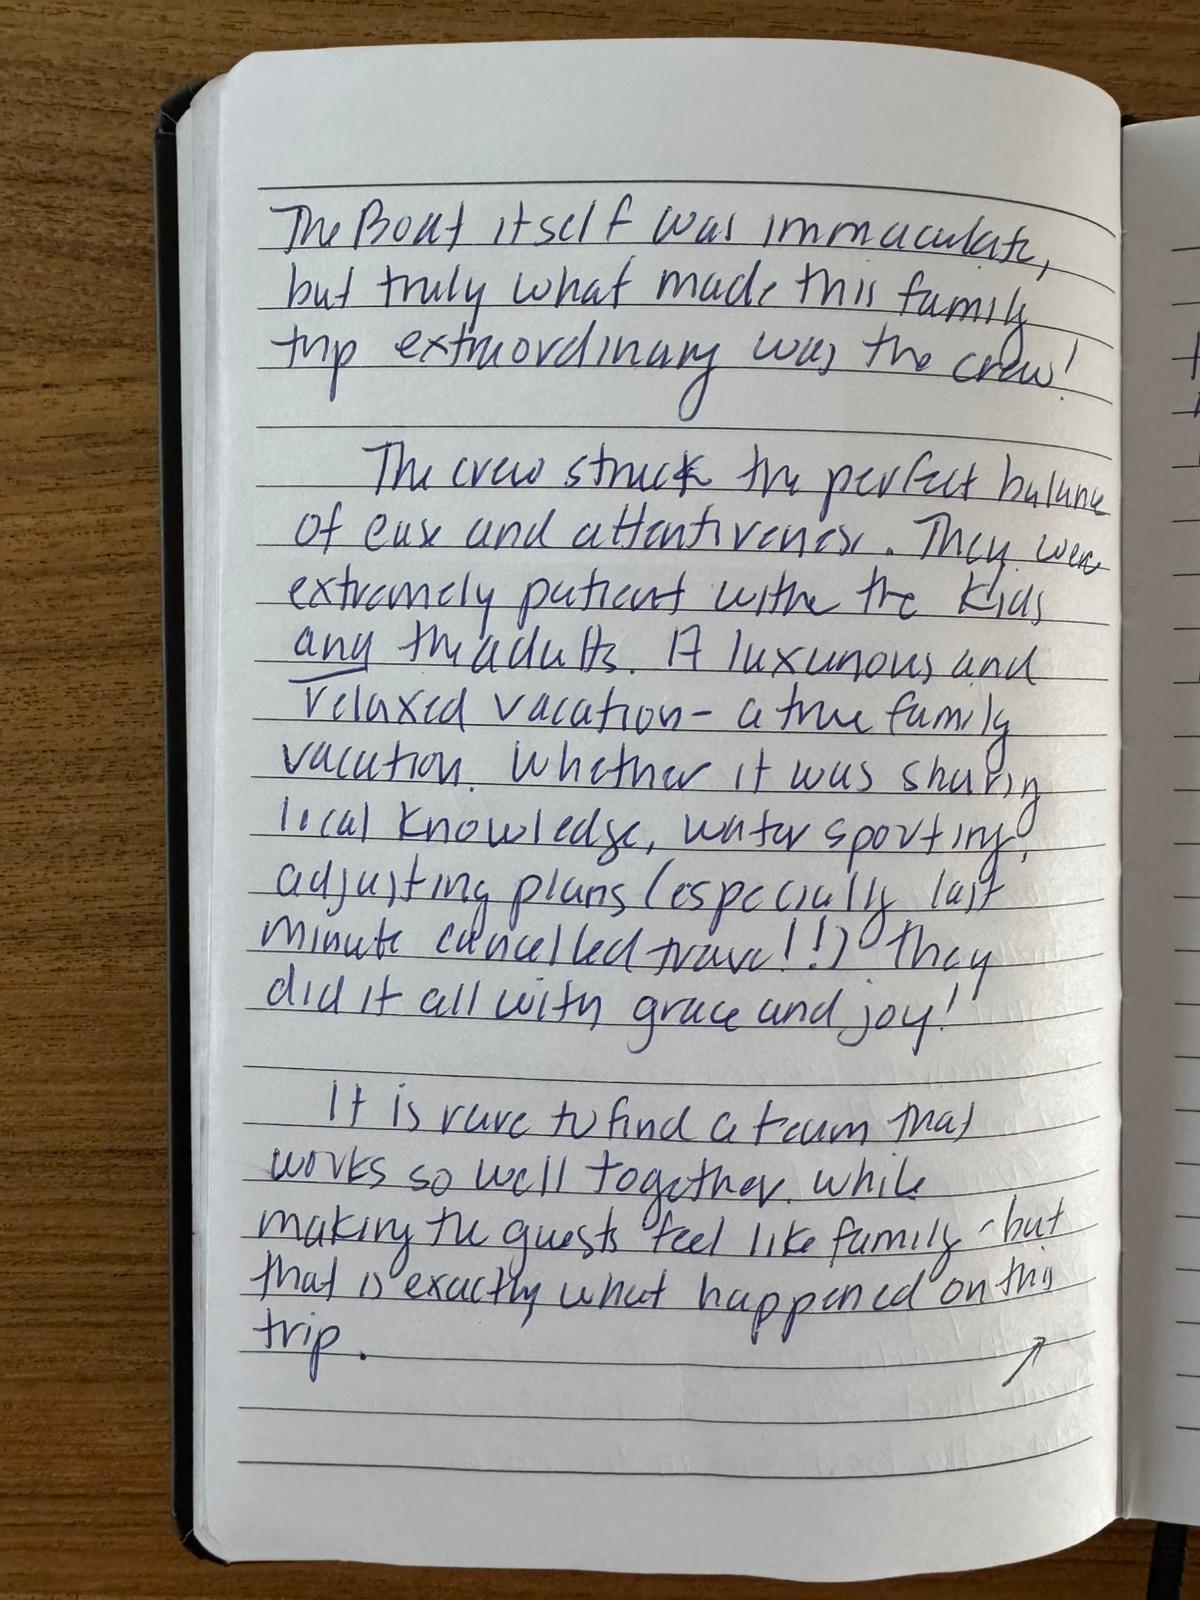 The Boat itself was immaculate,
but truly what made this family
trip extraordinary was the crew!
The crew struck the perfect balance
of ease and attentiveness. They were
extremely patient withe the kids
and the adults. A luxurious and
relaxed vacation - a true family
vacation. Whether it was sharing
local knowledge, water sporting,
adjusting plans (especially last
minute cancelled travel!!) they
did it all with grace and joy!
It is rare to find a team that
works so well together while
making the guests feel like family - but
that is exactly what happened on this
trip.